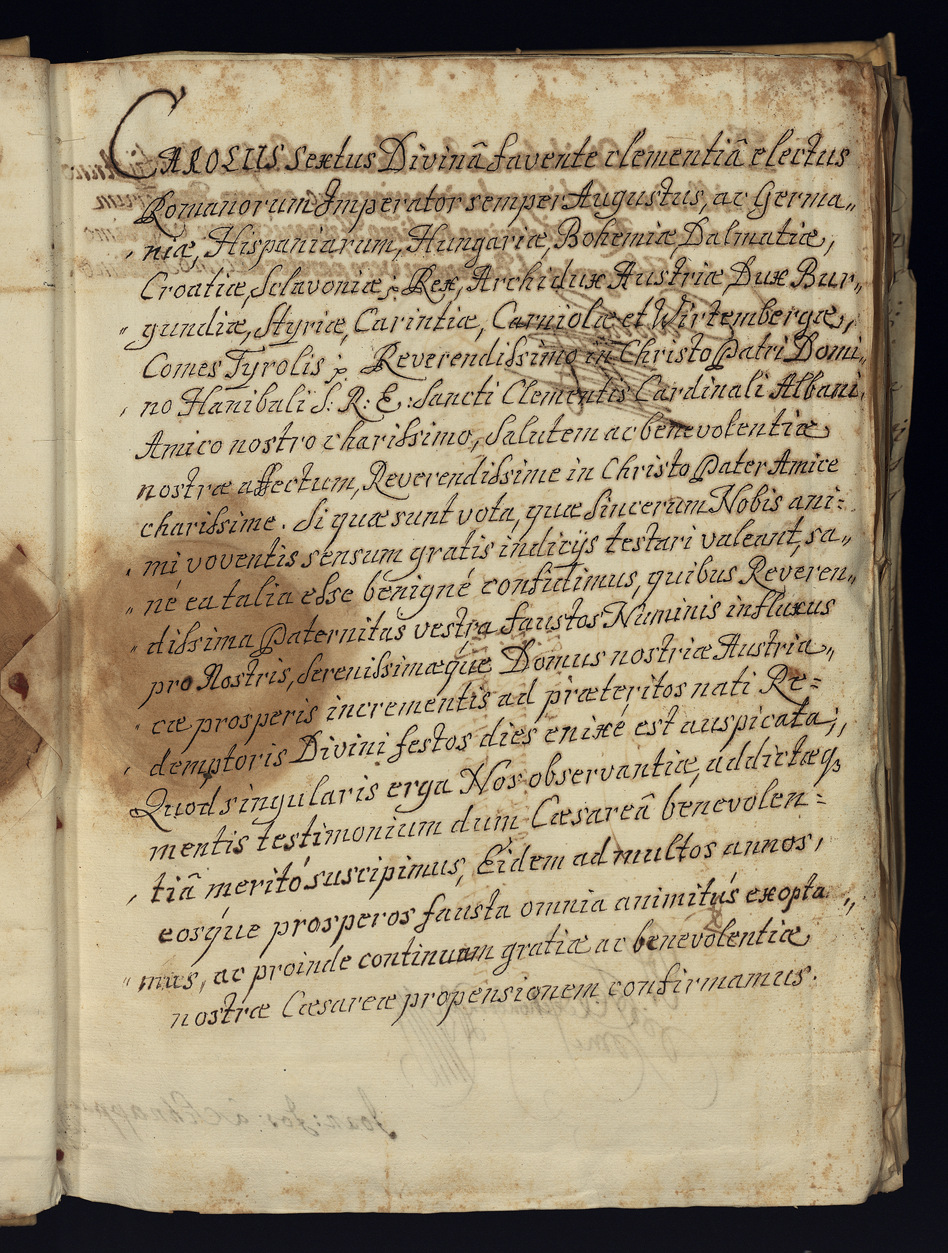 CAROLUS Sextus Divinâ favente clementiâ electus
Romanorum Imperator semper Augustus, ac Germa„
niæ, Hispaniarum, Hungariæ, Bohemiæ, Dalmatiæ,
Croatiæ, Sclavoniæ, Rex, Archidux Austriæ, Dux Bur„
„ gundiæ, Styriæ, Carintiæ, Carniolæ et Wirtembergæ,
Comes Tyrolis Reverendissimo in Christo Patri Domi„
no Hanibali S: R: E: Sancti Clementis Cardinali Albani,
Amico nostro charissimo, Salutem ac benevolentiæ
nostræ affectum, Reverendissime in Christo Pater Amice
charissime. Si quæ sunt vota, quæ Sincerum Nobis ani=
mi voventis sensum gratis indicijs testari valeant, sa„
„ né ea talia esse benigné confidimus, quibus Reveren„
„ dissima Paternitas vestra faustos Numinis influxus
pro Nostris, Serenissimæque Domus nostræ Austria„
„ cæ prosperis incrementis ad præteritos nati Re=
demptoris Divini festos dies enixé est auspicata;
Quod singularis erga Nos observantiæ, addictæq3
mentis testimonium dum Cæsareâ benevolen=
tiâ meritó suscipimus, Eidem ad multos annos,
eosque prosperos fausta omnia animitús exopta„
„ mus, ac proinde continuam gratiæ ac benevolentiæ
nostræ Cæsareæ propensionem confirmamus.